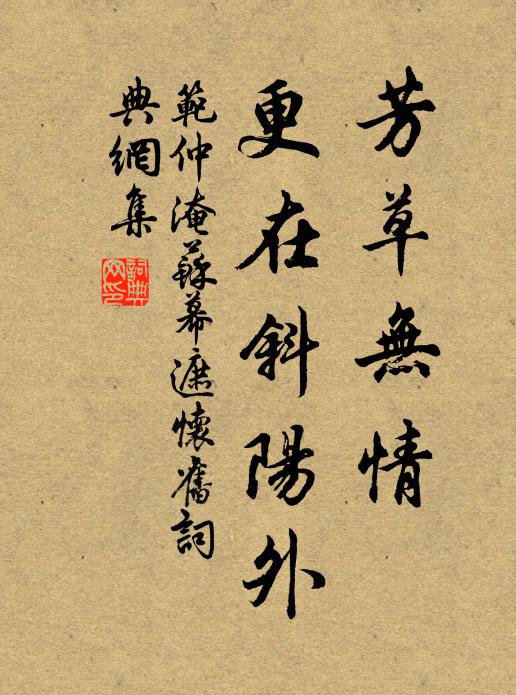 芳草無情
更在斜陽外
範仲淹蘇幕遮懷舊詞
典網集
詞典
网印